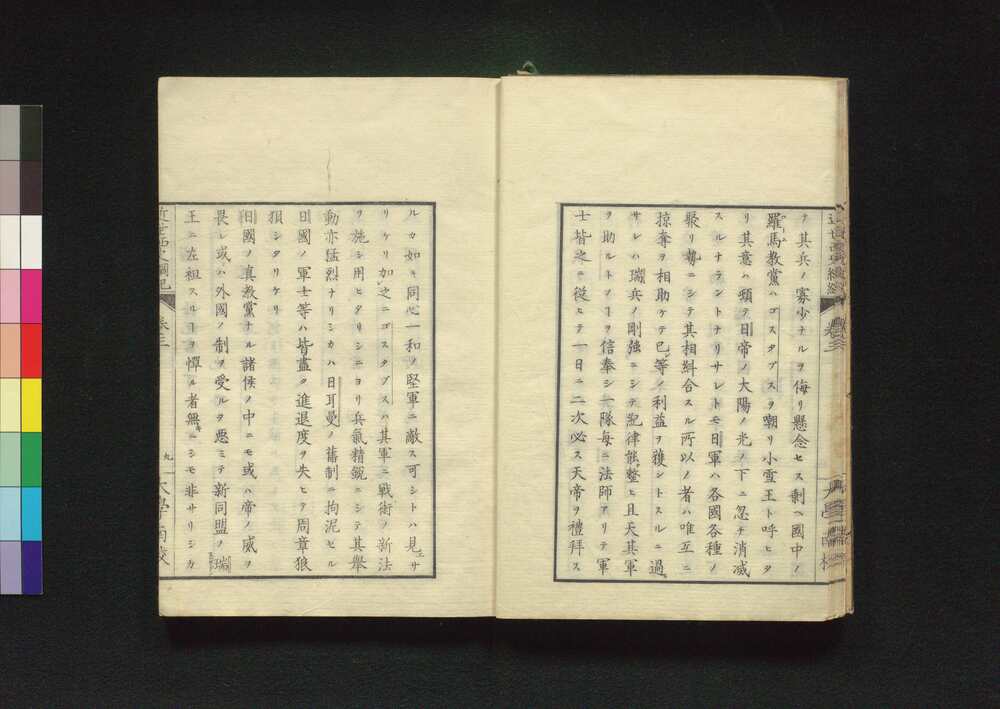 テ其兵ノ寡少ナルヲ侮リ懸念セス剰ヘ國中ノ
羅馬教黨ハゴスタブスヲ嘲リ小雪王ト呼ヒタ
リ其意ハ頸テ日帝ノ大陽ノ光ノ下ニ忽チ消滅
スルナラントナリサレトモ日軍ハ各國各種ノ
聚リ勢ニシテ其相糾合スル所以ノ者ハ唯互ニ
掠奪ヲ相助ケテ己等ノ利益ヲ獲ントスルニ過
サレハ瑞兵ノ剛強ニシテ紀律能整ヒ且天其軍
ヲ助ルト云フヿヲ信奉シ一隊毎ニ法師アリテ軍
士皆之ニ従ヒテ一日ニ二次必ス天帝ヲ禮拜ス
ルカ如キ同心一和ノ堅軍ニ敵ス可シトハ見エサ
リケリ加之ニゴスタブスハ其軍ニ戰術ノ新法
ヲ施シ用ヒタリシニヨリ兵氣精鋭ニシテ其舉
動亦猛烈ナリシカハ日耳曼ノ舊制ニ拘泥セル
日國ノ軍士等ハ皆盡ク進退度ヲ失ヒテ周章狼
狽シタリケリ
日國ノ真教黨ナル諸侯ノ中ニモ或ハ帝ノ威ヲ
畏レ或ハ外國ノ制ヲ受ルヲ惡ミテ新同盟ノ瑞
王ニ左袒スルヿヲ憚ル者無ニシモ非サリシカ
近世西史綱紀 卷三 九 大學南校